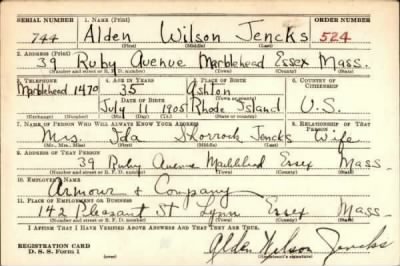 SERIAL NUMBER 1. NAME (Print) ORDER NUMBER
744 Alden Wilson Jencks 524
(First) (Middle) (Last)
2. ADDRESS (Print)
39 Ruby Avenue Marblehead Essex Mass.
(Number and street or R. F. D. number) (Town) (County) (State)
3. TELEPHONE 4. AGE IN YEARS 5. PLACE OF BIRTH 6. COUNTRY OF CITIZENSHIP
Marblehead 1470 35 Ashton
DATE OF BIRTH (Town or county)
July 11 1905 Rhode Island U.S.
(Exchange) (Number) (Mo.) (Day) (Yr.) (State or country)
7. NAME OF PERSON WHO WILL ALWAYS KNOW YOUR ADDRESS 8. RELATIONSHIP OF THAT PERSON
Mrs. Ida Shorrock Jencks Wife
(Mr., Mrs., Miss) (First) (Middle) (Last)
9. ADDRESS OF THAT PERSON
39 Ruby Avenue Marblehead Essex Mass
(Number and street or R. F. D. number) (Town) (County) (State)
10. EMPLOYER'S NAME
Armour & Company
11. PLACE OF EMPLOYMENT OR BUSINESS
142 Pleasant St Lynn Essex Mass
(Number and street or R. F. D. number) (Town) (County) (State)
I AFFIRM THAT I HAVE VERIFIED ABOVE ANSWERS AND THAT THEY ARE TRUE.
REGISTRATION CARD
D. S. S. Form 1
Alden Wilson Jencks